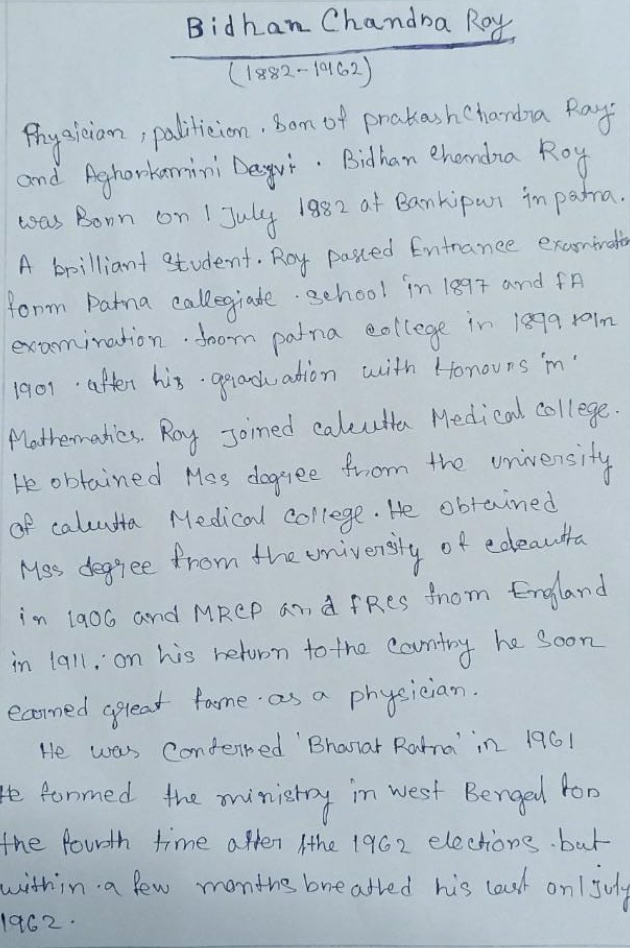 Bidhan Chandra Roy
(1882-1962)
Physician, politicion. Son of prakash Chandra Ray.
and Aghorkamini Deyvi. Bidhan Chandra Roy
was Born on 1 July 1982 at Bankipur in patna.
A brilliant student. Roy passed Entrance examination
form Patna collegiate. school in 1897 and FA
examination. from patna college in 1899
1901. after his. graduation with Honours in
Mathematics. Roy Joined calcutta Medical college.
He obtained Mss degree from the university
of calcutta Medical college. He obtained
Mss degree from the university of
in 1906 and MRCP and FRCS from England
in 1911. on his return to the country he soon
earned great fame. as a physician.
He was Conferred 'Bharat Ratna' in 1961
He formed the ministry in west Bengal for
the fourth time after the 1962 elections. but
within a few months breathed his last on 1 july
1962.